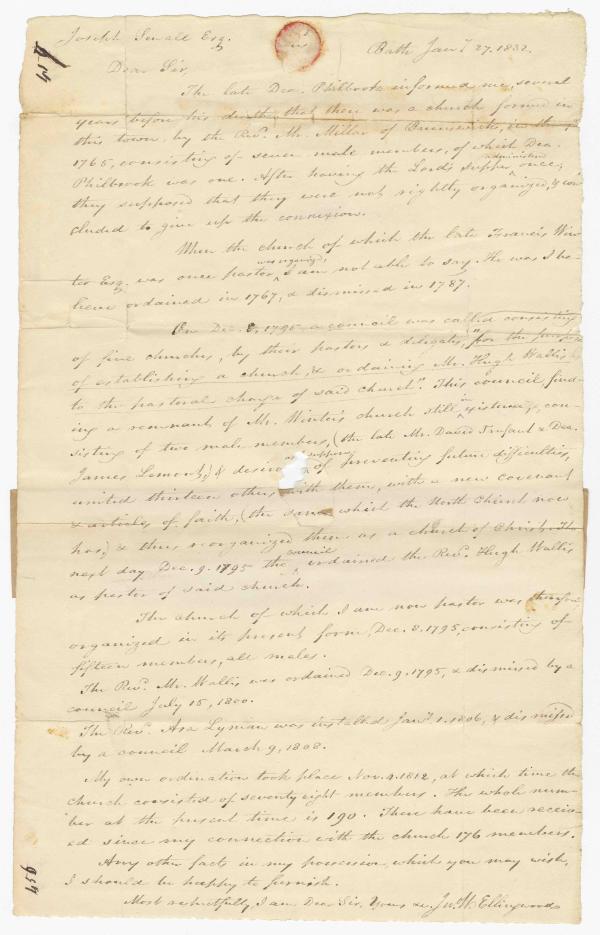 Joseph Sewall Esq.
Bath Jany 27. 1832.
Dear Sir,
The late Dea. Philbrook informed me, several
years before his death, that there was a church formed in
this town, by the Revd. Mr. Miller of Brunswick, in the yr
1765, consisting of seven male members, of which Dea.
Philbrook was one. After having the Lord's supper administered once,
they supposed that they were not rightly organized, & con
cluded to give up the connexion.
When the church of which the late Francis Win
ter Esq. was once pastor, was organized, I am not able to say. He was I be-
lieve ordained in 1767, & dismissed in 1787.
On Dec. 8, 1795 a council was called consisting
of five churches, by their pastors & delegates, "for the purpose
of establishing a church, & ordaining Mr. Hugh Wallis
to the pastoral charge of said church". This council, find-
ing a remnant of Mr. Winter's church still in existence, con-
sisting of two male members, (the late Mr. David Trufant & Dea.
James Lemont,) & desirous of preventing future difficulties,
united thirteen others with them, with a new covenant
& articles of faith, (the same which the North Church now
has,) & thus reorganized them as a church of Christ. The
next day Dec. 9. 1795 the council ordained the Revd. Hugh Wallis
as pastor of said church.
The church of which I am now pastor was therefore
organized in its present form, Dec. 8. 1795, consisting of
fifteen members, all males.
The Revd. Mr. Wallis was ordained Dec. 9. 1795, & dismissed by a
council July 15, 1800.
The Revd. Asa Lyman was installed Jany. 1. 1806, & dismissed
by a council March 9, 1808.
My own ordination took place Nov. 4. 1812, at which time the
church consisted of seventy eight members. The whole num-
ber at the present time is 190. There have been receiv-
ed since my connection with the church 176 members.
Any other facts in my possession, which you may wish,
I should be happy to furnish.
Most respectfully, I am Dear Sir, Yours &c. Jno. W. Ellingwood